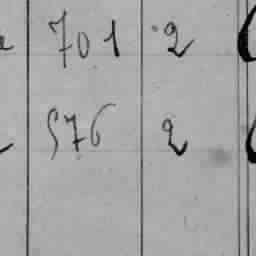 701 2
576 2